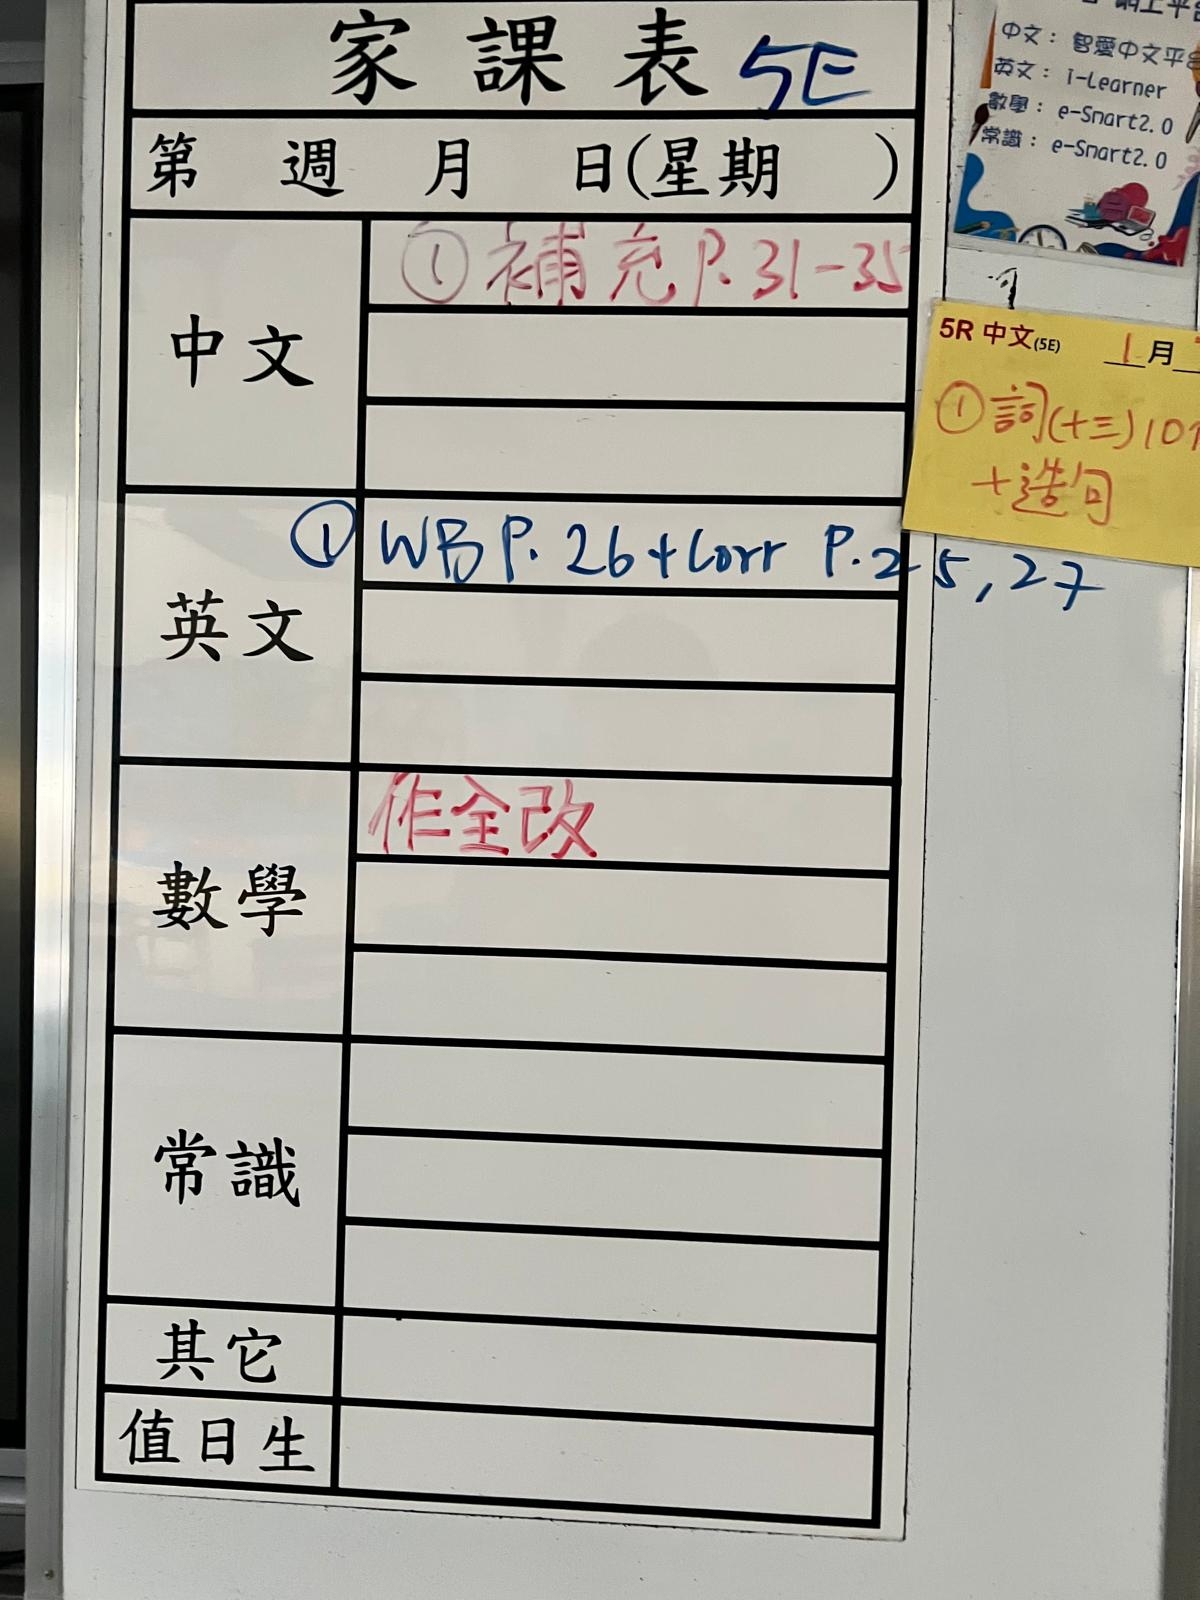 家課表 5E
第 週 月 日(星期 )
中文
① 補充 P.31-35
英文
① WB P.26+Corr P.25,27
數學
作全改
常識
其它
值日生
中文：智愛中文平台
英文：i-Learner
數學：e-Smart2.0
常識：e-Smart2.0
5R 中文(5E) 1月
① 詞(十三)10
+造句